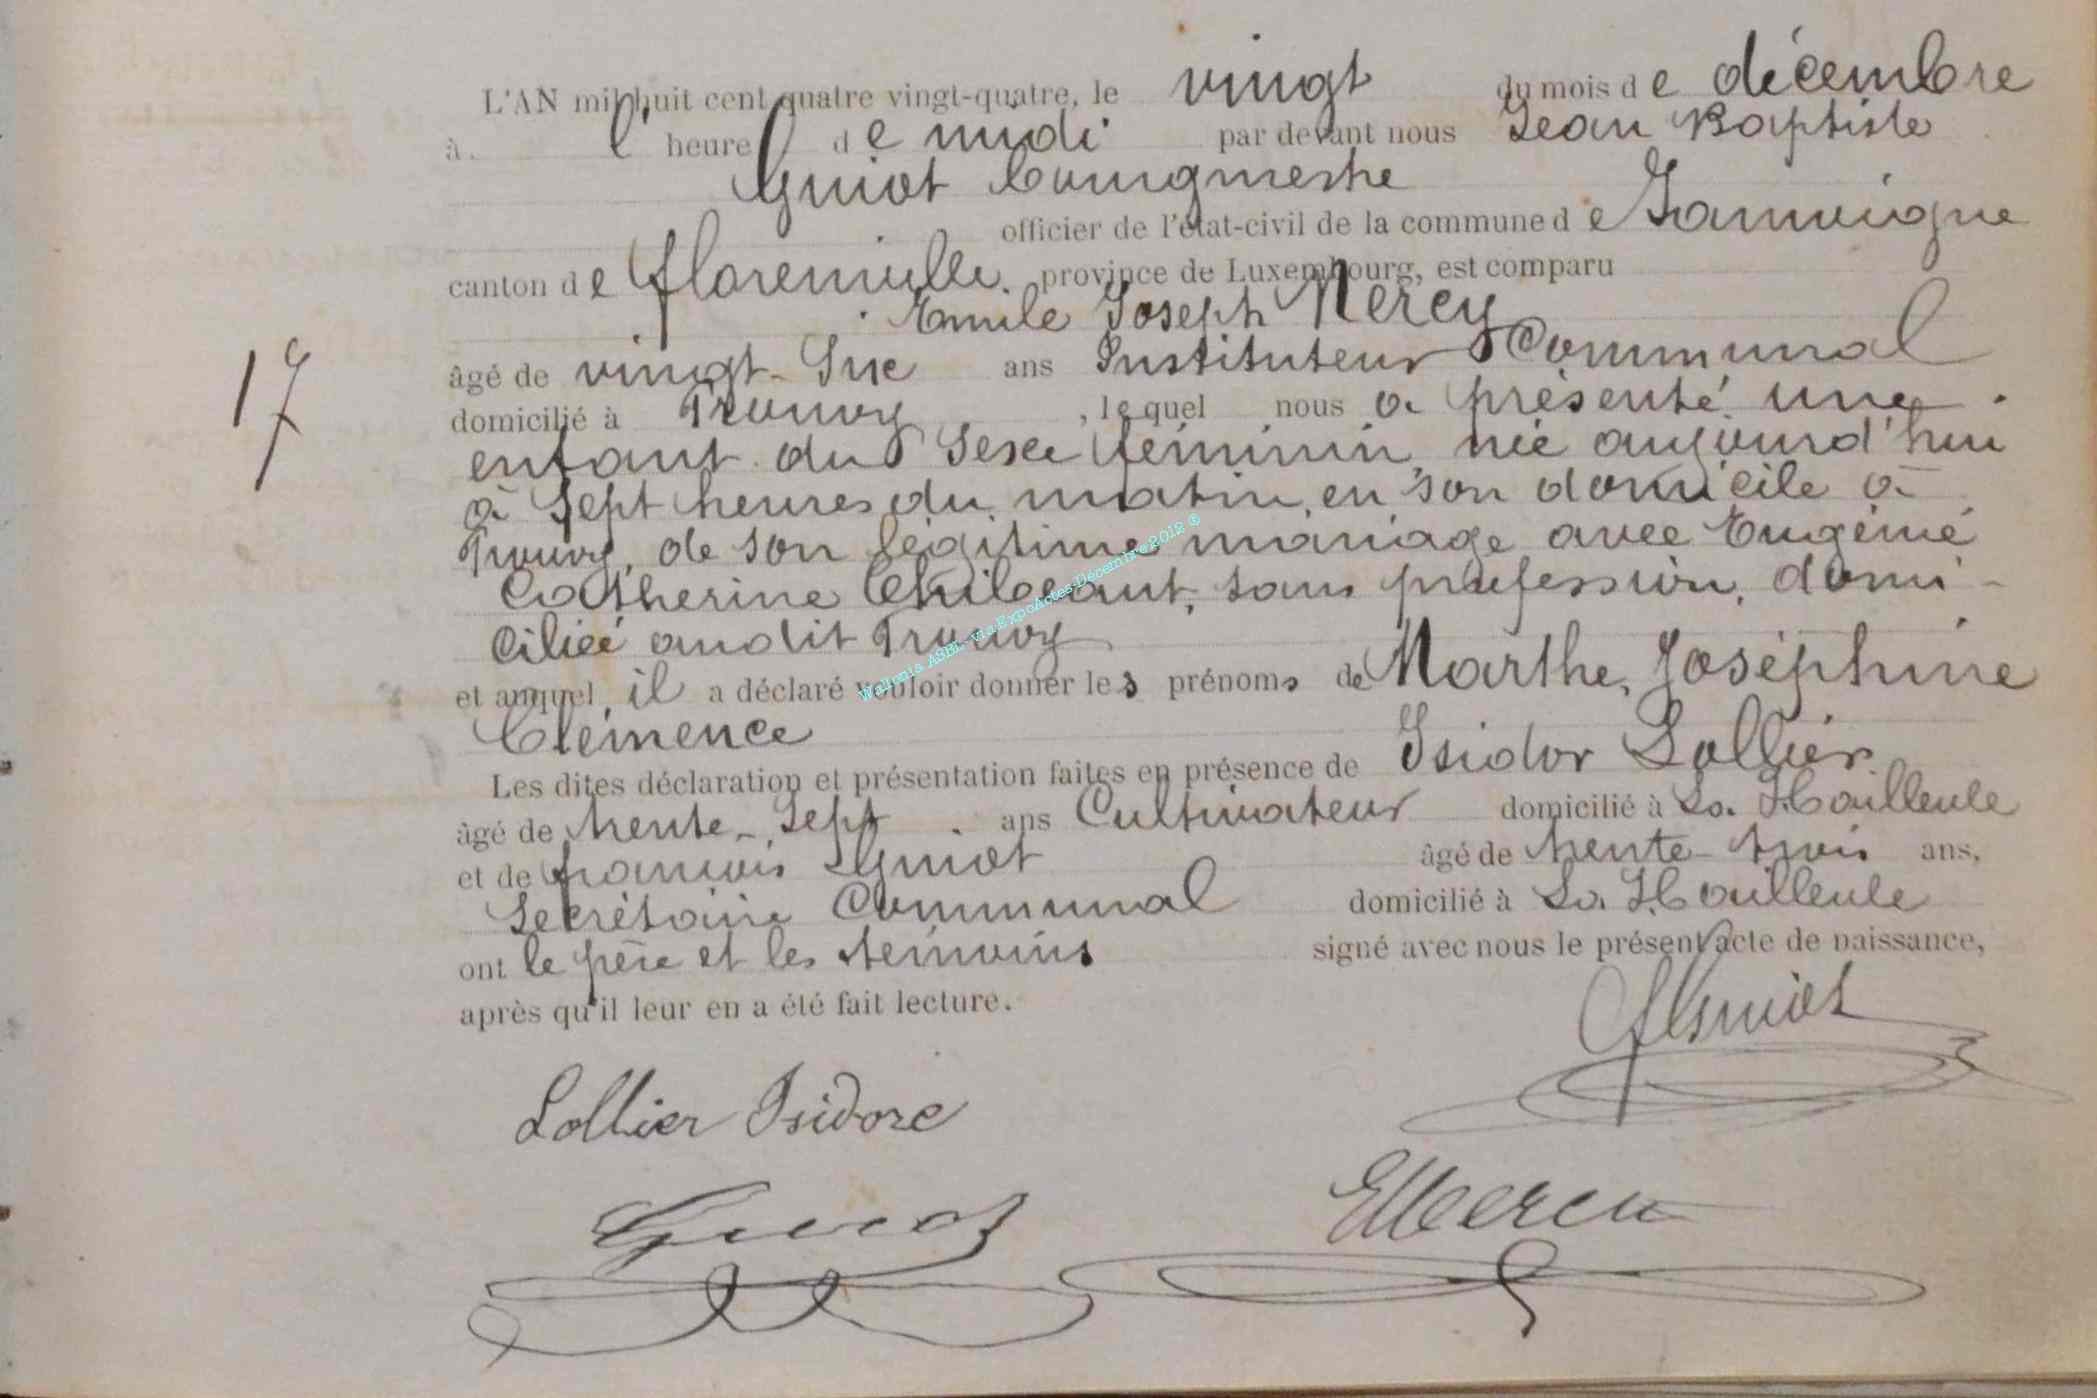 L'AN mil huit cent quatre vingt-quatre, le vingt du mois de décembre
à l'heure de midi par devant nous Jean Baptiste
Guiot bourgmestre
officier de l'état-civil de la commune de Jamoigne
canton de florenville. province de Luxembourg, est comparu
Emile Joseph Mercy
17
âgé de vingt-Six ans Instituteur Communal
domicilié à Prouvy, lequel nous a présenté une
enfant du Sexe féminin, née aujourd'hui
à Sept heures du matin, en son domicile à
Prouvy, de son légitime mariage avec Eugénie
Catherine, sans profession, domi-
ciliée audit Prouvy
et auquel il a déclaré vouloir donner les prénoms de Marthe, Joséphine
Clémence
Les dites déclaration et présentation faites en présence de Isidor Lollier
âgé de trente-Sept ans Cultivateur domicilié à La Hailleule
et de françois Guiot âgé de trente-trois ans,
Secrétaire Communal domicilié à La Hailleule
ont le père et les témoins signé avec nous le présent acte de naissance,
après qu'il leur en a été fait lecture.
Guiot
Lollier Isidore
EMercy
Guiot
Wallonia ASBL - via ExpoActes-Décembre 2012 ©